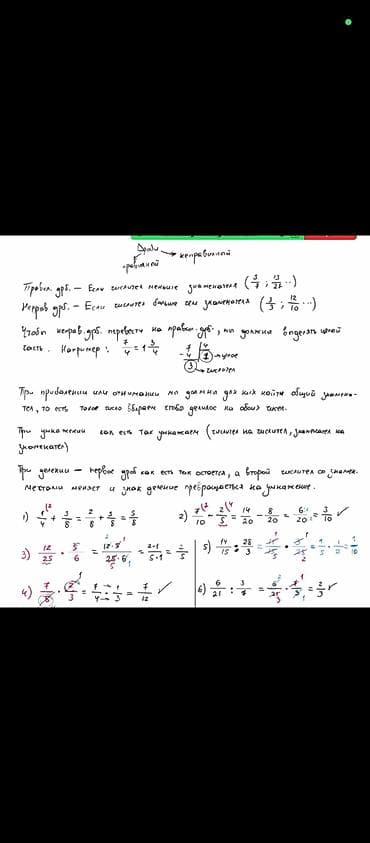 Дроби → неправильной
правильной
Правил. дрб. – Если числител меньше знаменателя (3/7 ; 13/27 ...)
Неправ. дрб. – Если числител больше чем знаменателя (3/3 ; 12/10 ...)
Чтобы неправ. дрб. перевести на правил. дрб., мы должны выделять целой
часть. Например: 7/4 = 1 3/4
7 | 4
- 4 | 1 → целое
3 → числител
При прибавлении или отнимании мы должны для них найти общий знамена-
тел, то есть такое число чтобы делилос на обоих чисел.
При умножении как есть так умножаем (числител на числител, знаменател на
знаменател)
При делении – первое дроб как есть так остается, а второй числител со знамен.
местами меняет и знак деление превращается на умножение.
1) 1/4 + 3/8 = 2/8 + 3/8 = 5/8
2) 7/10 - 2/5 = 14/20 - 8/20 = 6/20 = 3/10 ✓
3) 12/25 · 5/6 = 12·5/25·6 = 2·1/5·1 = 2/5
5) 14/15 : 28/3 = 14/15 · 3/28 = 1/5 · 1/2 = 1/10
4) 7/8 · 2/3 = 7/4 · 1/3 = 7/12 ✓
6) 6/21 : 3/7 = 6/21 · 7/3 = 2/3 ✓